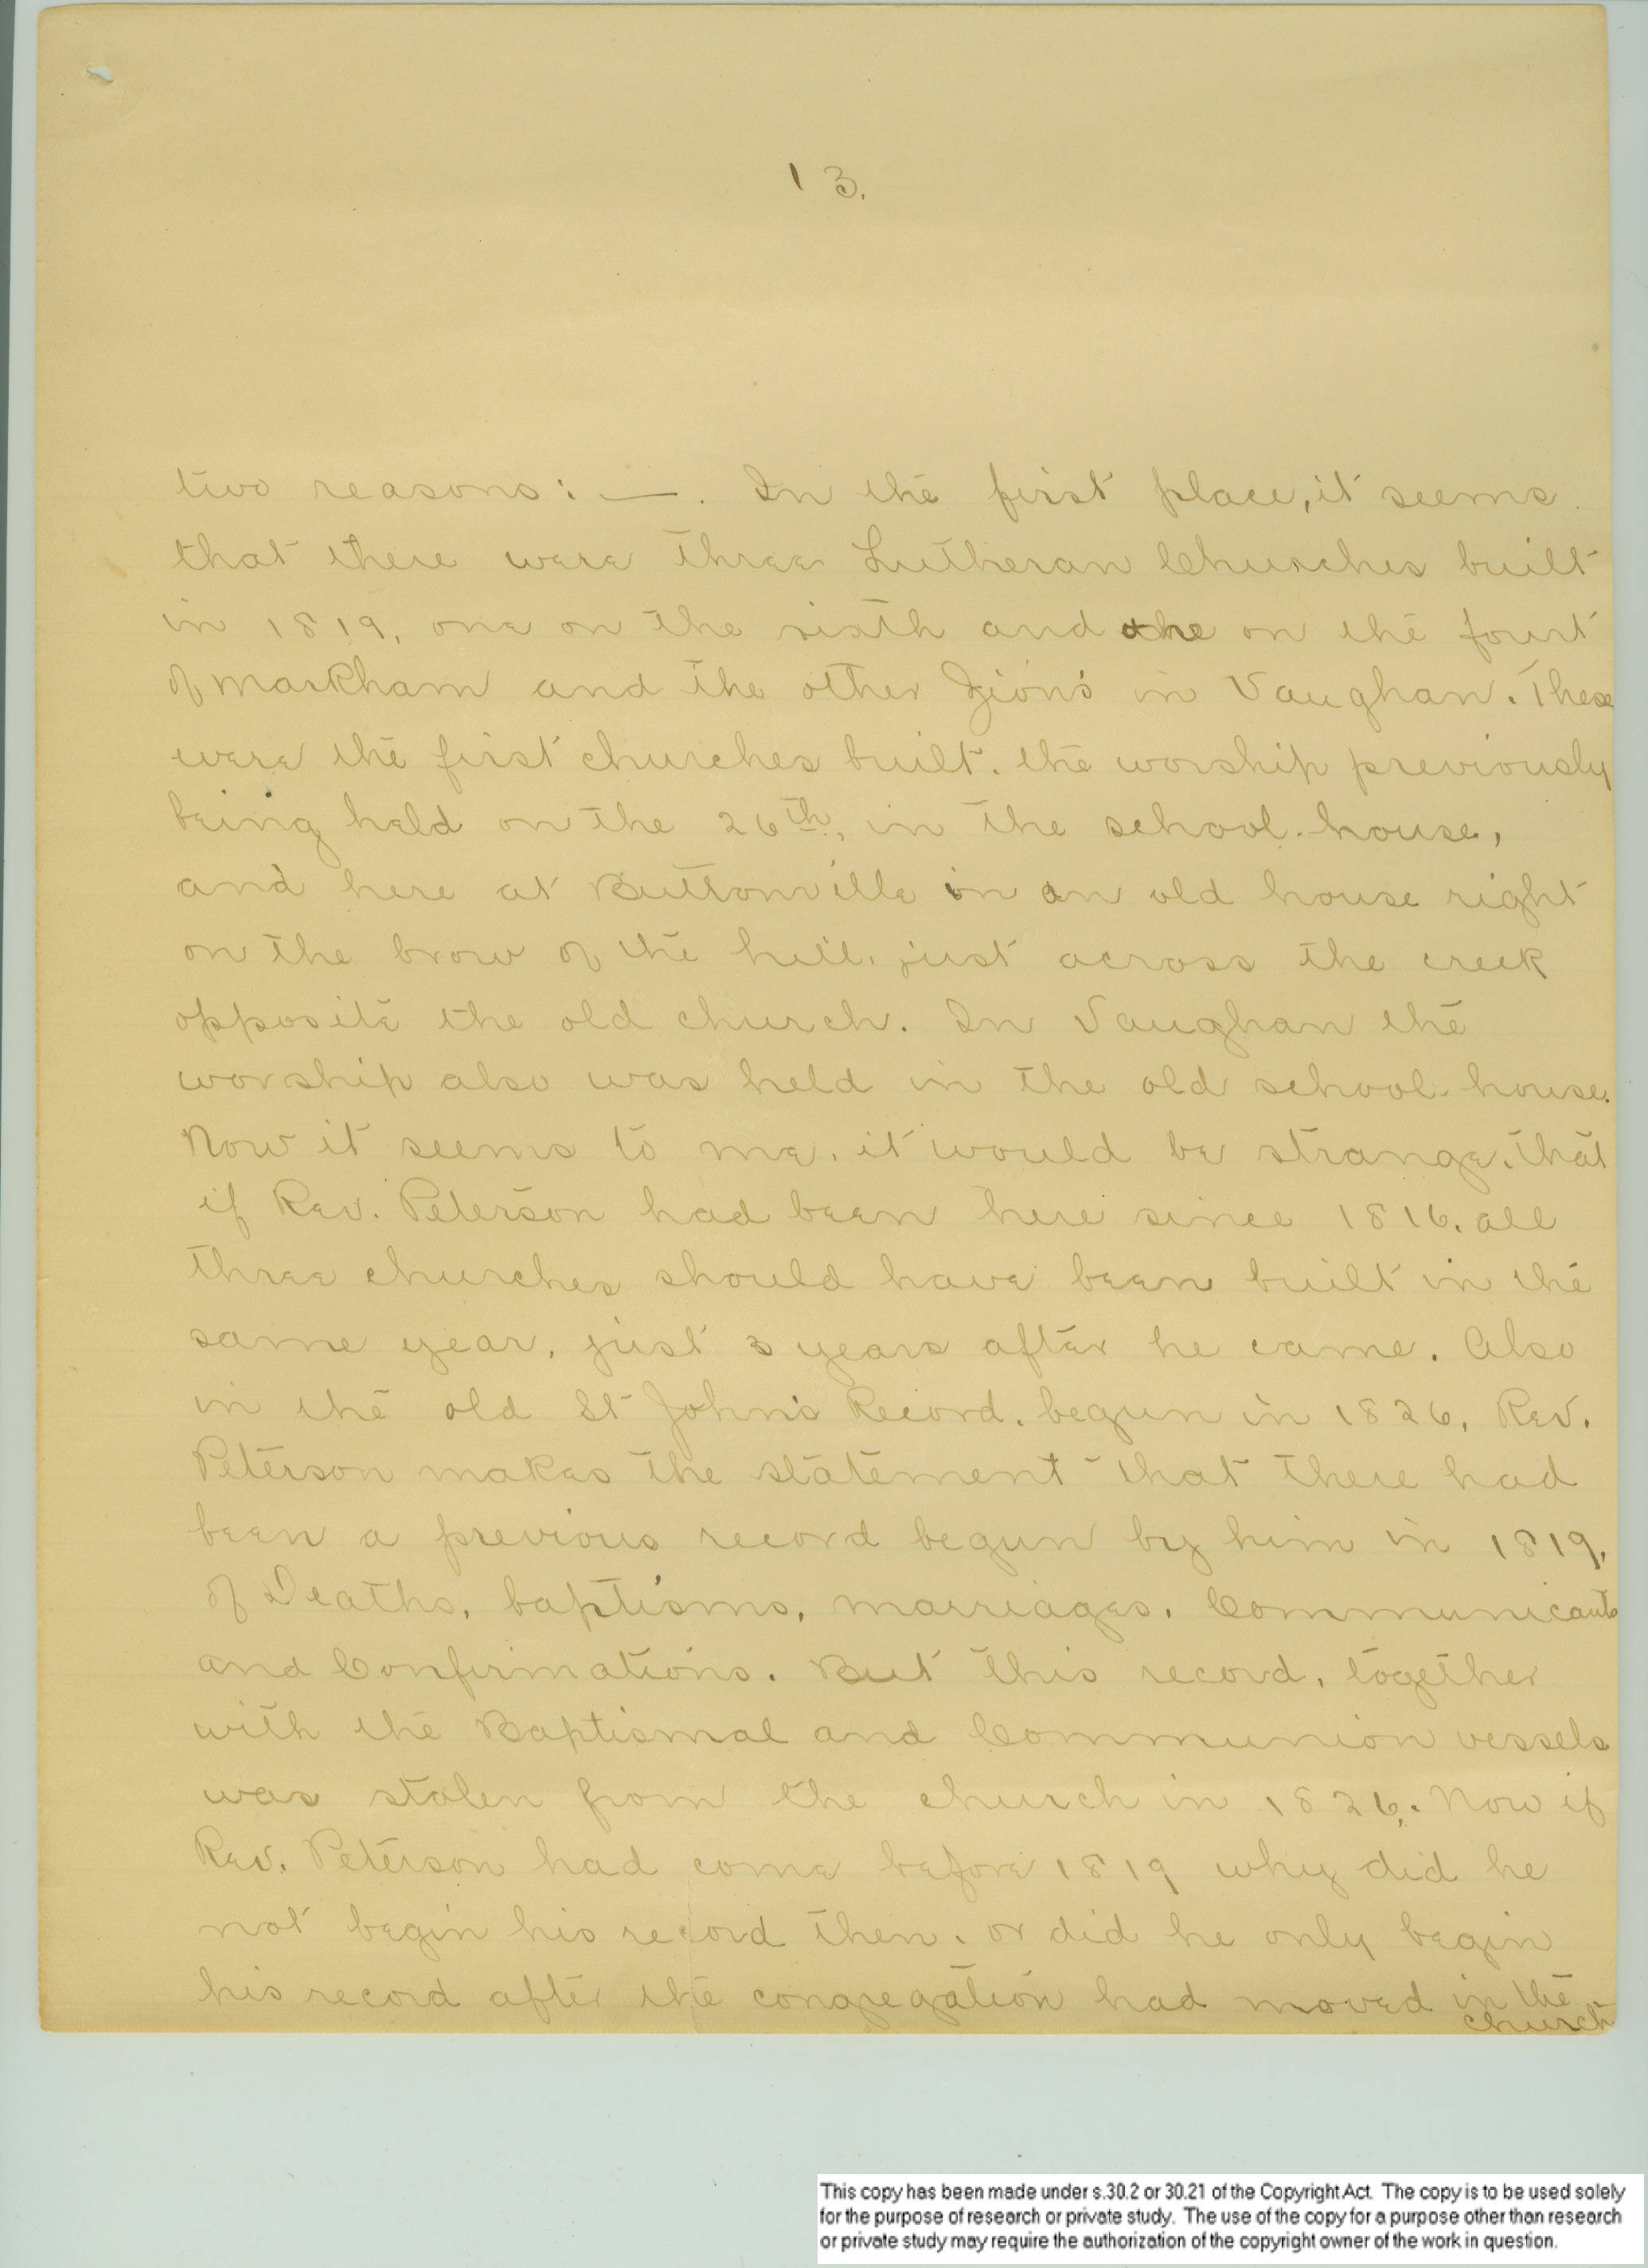 13.
two reasons: —. In the first place, it seems
that there were three Lutheran Churches built
in 1819, one on the sixth and one on the fourt
of Markham and the other Zion's in Vaughan. These
were the first churches built. the worship previously
being held on the 26th, in the school-house,
and here at Buttonville in an old house right
on the brow of the hill, just across the creek
opposite the old church. In Vaughan the
worship also was held in the old school-house.
Now it seems to me, it would be strange, that
if Rev. Peterson had been here since 1816, all
three churches should have been built in the
same year, just 3 years after he came. Also
in the old St John's Record, begun in 1826, Rev.
Peterson makes the statement that there had
been a previous record begun by him in 1819,
of Deaths, baptisms, marriages, Communicants
and Confirmations. But this record, together
with the Baptismal and Communion vessels
was stolen from the church in 1826. Now if
Rev. Peterson had come before 1819 why did he
not begin his record then, or did he only begin
his record after the congregation had moved in the
church
This copy has been made under s.30.2 or 30.21 of the Copyright Act. The copy is to be used solely
for the purpose of research or private study. The use of the copy for a purpose other than research
or private study may require the authorization of the copyright owner of the work in question.